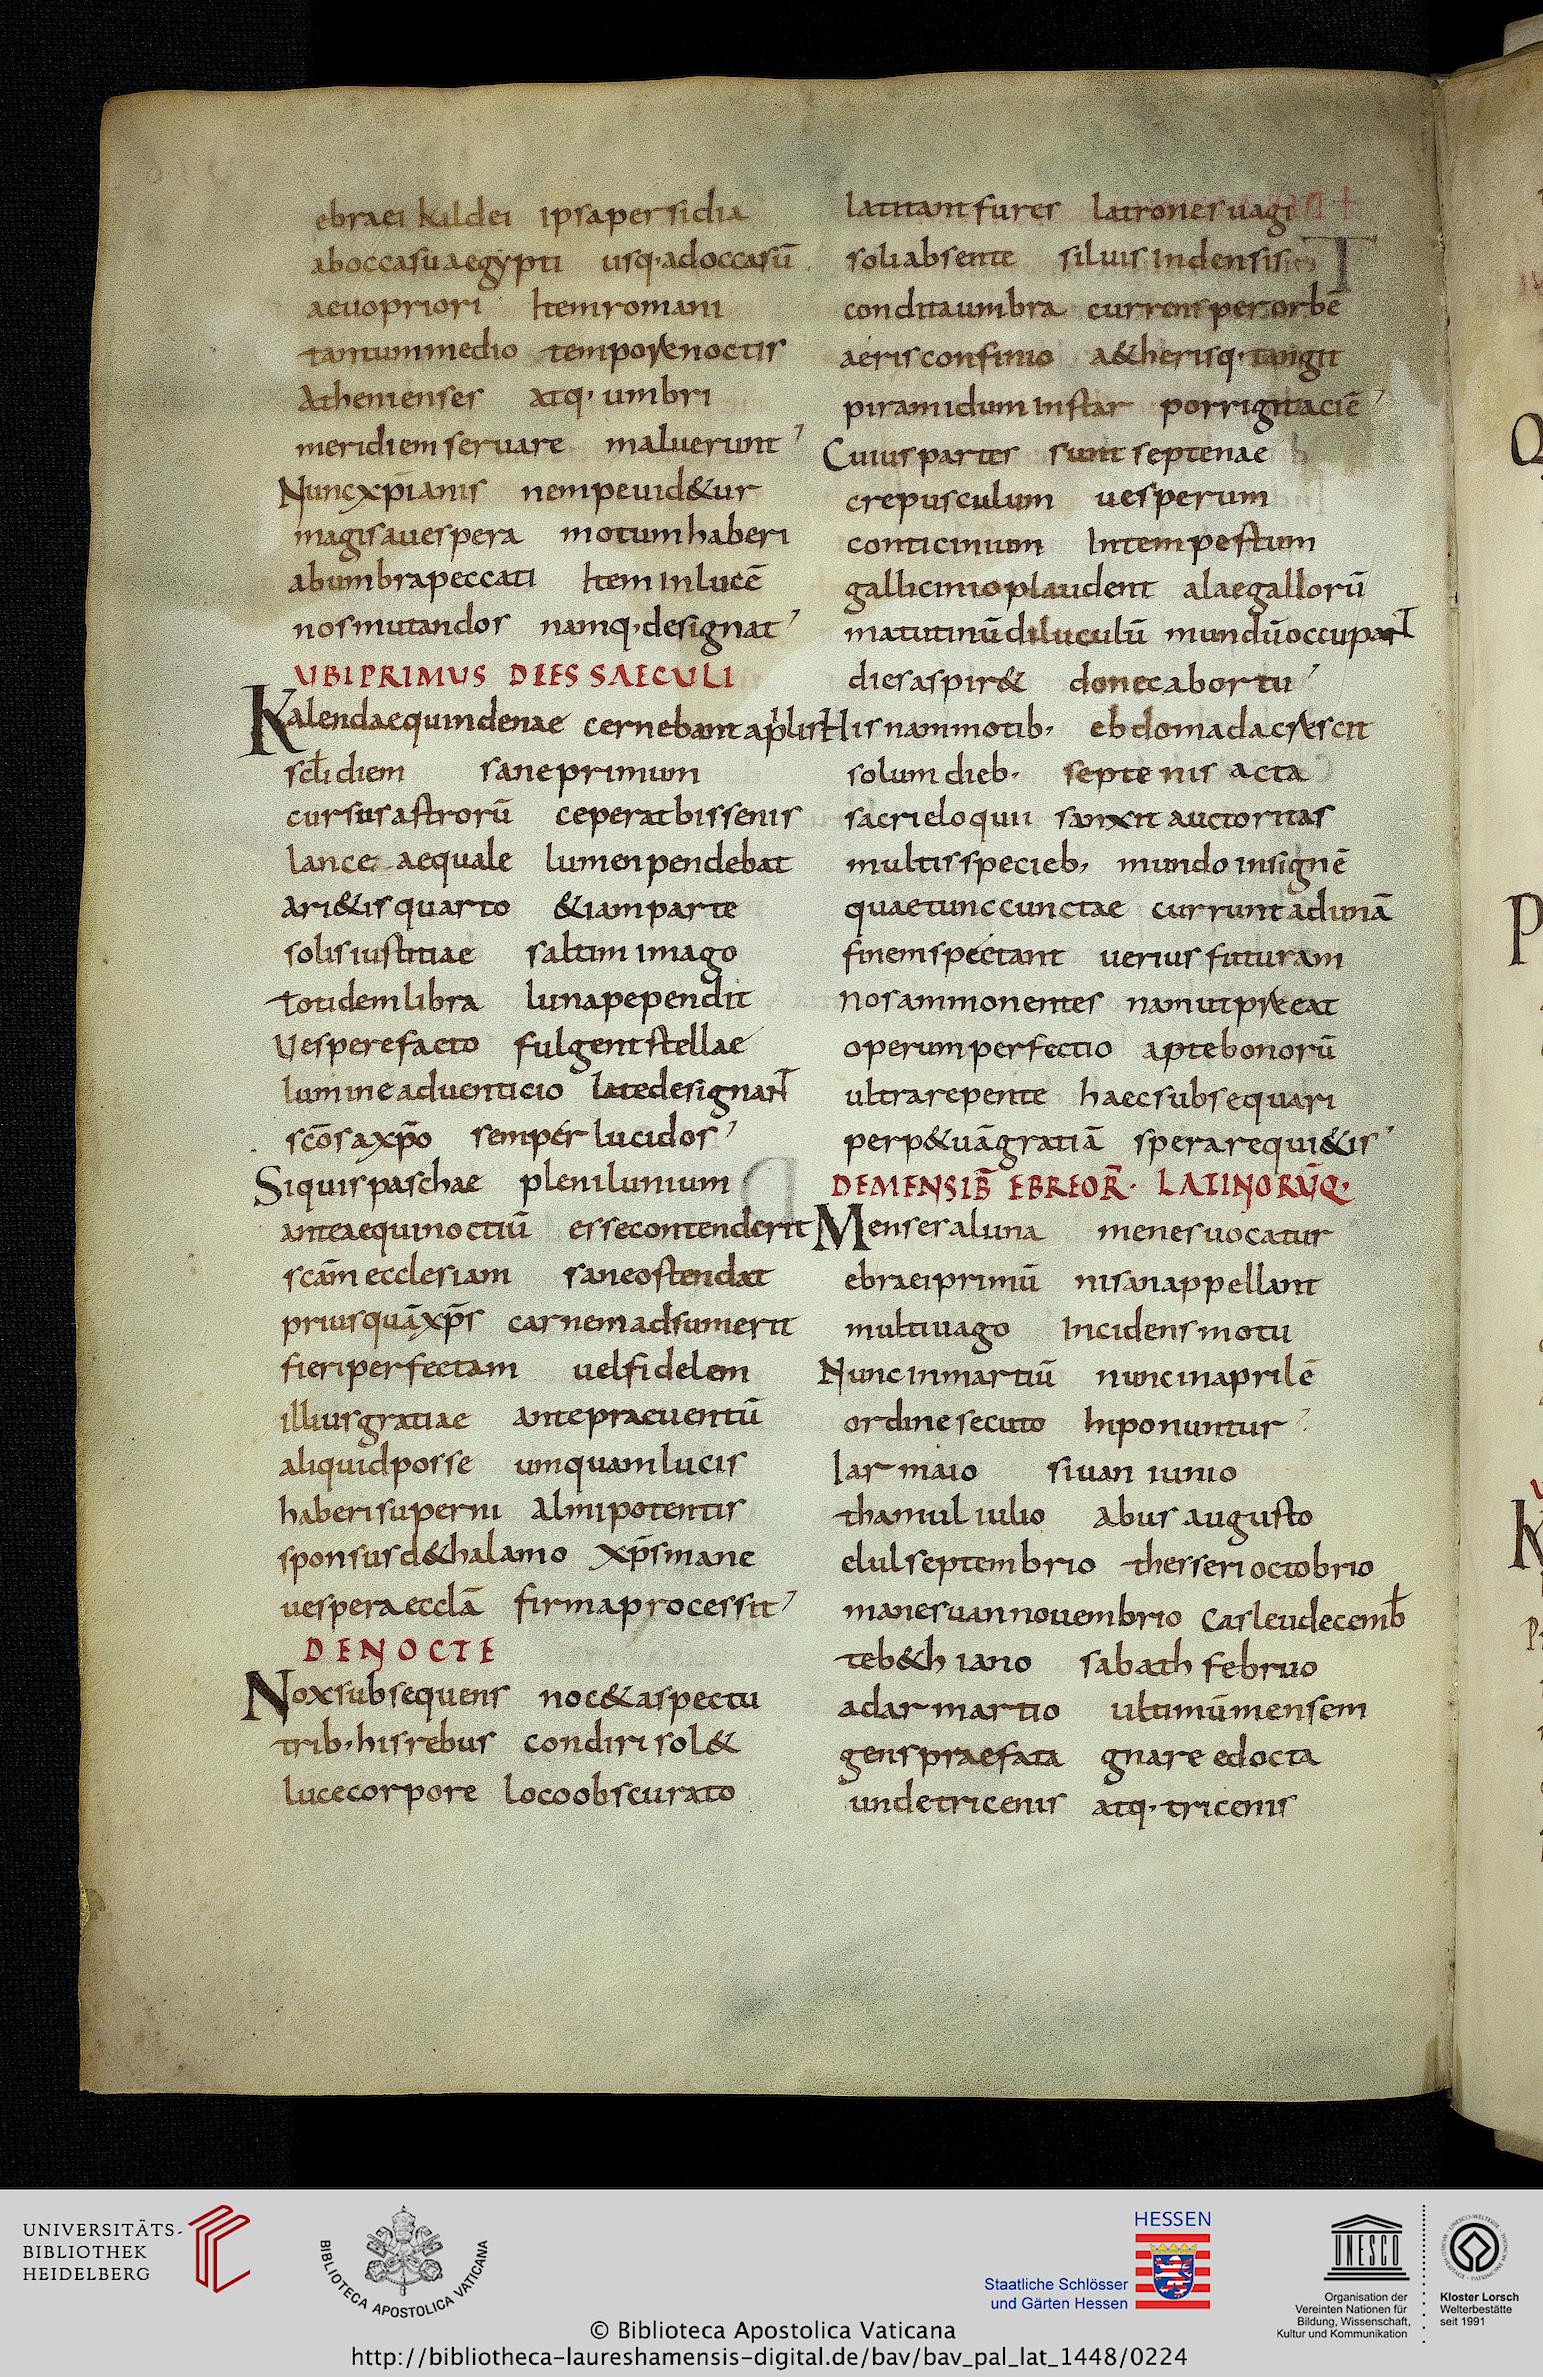 ebraei kaldei ipsa persidia
ab occasu aegypti usq· ad occasū
aevo priori Item romani
tantum medio tempore noctis
Athenienses atq· umbri
meridiem servare maluerunt
Nunc xp̄ianis nempe uid&ur
magis a uespera motum haberi
ab umbra peccati Item in lucē
nos mutandos namq· designat
UBI PRIMUS DIES SAECULI
Kalendae quindenae cernebant aplis
scl̄i diem sane primum
cursus astrorū ceperat bissenis
lance aequale lumen pendebat
ari&is quarto &iam parte
solis iustitiae saltim imago
totidem libra luna pependit
Vespere facto fulgent stellae
lumine adventicio late designant
scōs a xpō semper lucidos
Si quis paschae plenilunium
ante aequinoctiū esse contenderit
scām ecclesiam sane ostendat
prius quā xp̄s carnem adsumerit
fieri perfectam uel fidelem
illius gratiae ante praeuentū
aliquid posse umquam lucis
haberi superni Almi potentis
sponsus d& halamo xp̄s mane
uespera ecclā firma processit
DE NOCTE
Nox subsequens noc& aspectu
trib· his rebus condiri sol&
luce corpore loco obscurato
latitant fures latrones uagi
soli absente siluis in densis
condita umbra currens per orbē
aeris confinio a&herisq· tangit
piramidum instar porrigit aciē
Cuius partes sunt septenae
crepusculum uesperum
conticinium Intempestum
gallicinio plaudent alae gallorū
matutinū diluculū mundū occupant
dies aspir& donec ab ortu
His nam motib· ebdomada crescit
solum dieb· septenis acta
sacri eloquii sanxit auctoritas
multis specieb· mundo insignē
quae tunc cunctae currunt ad unā
finem spectant uerius futuram
Nos ammonentes nam ut preeat
operum perfectio apte bonorū
ultra repente haec subsequari
perp&uā gratiā sperare qui&is
DE MENSIB̄ EBREOR̄· LATINORŪQ·
Menses a luna menes uocatur
ebraei primū nisan appellant
multiuago Incidens motu
Nunc in martiū nunc in aprilē
ordine secuto hi ponuntur
Iar maio siuan iunio
thamul iulio Abus augusto
elul septembrio thesseri octobrio
manesuan nouembrio Casleu decemb̄
teb&h iano sabath februo
adar martio ultimū mensem
gens praefata gnare edocta
undetricenis atq· tricenis
UNIVERSITÄTS-
BIBLIOTHEK
HEIDELBERG
BIBLIOTECA APOSTOLICA VATICANA
HESSEN
Staatliche Schlösser
und Gärten Hessen
UNESCO
Organisation der
Vereinten Nationen für
Bildung, Wissenschaft,
Kultur und Kommunikation
Kloster Lorsch
Welterbestätte
seit 1991
© Biblioteca Apostolica Vaticana
http://bibliotheca-laureshamensis-digital.de/bav/bav_pal_lat_1448/0224